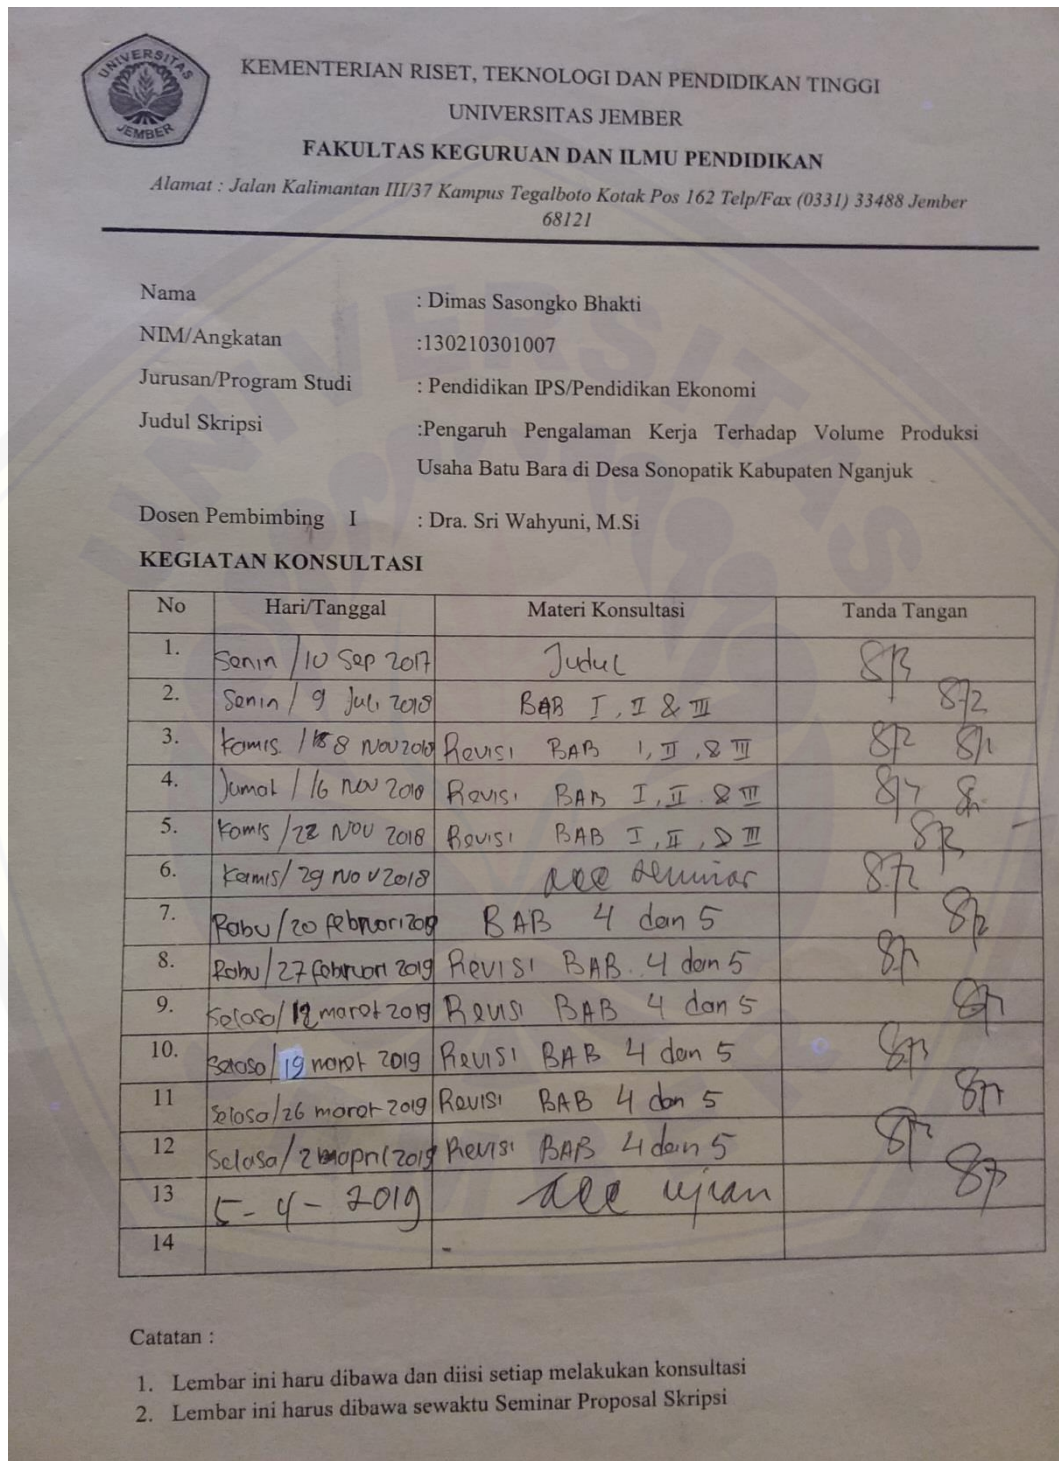 UNIVERSITAS
JEMBER
KEMENTERIAN RISET, TEKNOLOGI DAN PENDIDIKAN TINGGI
UNIVERSITAS JEMBER
FAKULTAS KEGURUAN DAN ILMU PENDIDIKAN
Alamat : Jalan Kalimantan III/37 Kampus Tegalboto Kotak Pos 162 Telp/Fax (0331) 33488 Jember
68121
Nama : Dimas Sasongko Bhakti
NIM/Angkatan :130210301007
Jurusan/Program Studi : Pendidikan IPS/Pendidikan Ekonomi
Judul Skripsi :Pengaruh Pengalaman Kerja Terhadap Volume Produksi
Usaha Batu Bara di Desa Sonopatik Kabupaten Nganjuk
Dosen Pembimbing I : Dra. Sri Wahyuni, M.Si
KEGIATAN KONSULTASI
No Hari/Tanggal Materi Konsultasi Tanda Tangan
1. Senin /10 Sep 2017 Judul
2. Senin / 9 Juli 2018 BAB I, II & III
3. Kamis / 8 Nov 2018 Revisi BAB I, II, & III
4. Jumat / 16 Nov 2018 Revisi BAB I, II & III
5. Kamis /22 Nov 2018 Revisi BAB I, II, & III
6. Kamis/ 29 Nov 2018 acc seminar
7. Rabu /20 februari 2019 BAB 4 dan 5
8. Rabu/27 februari 2019 Revisi BAB 4 dan 5
9. Selasa/ 12 maret 2019 Revisi BAB 4 dan 5
10. Selasa/ 19 maret 2019 Revisi BAB 4 dan 5
11 Selasa/26 maret 2019 Revisi BAB 4 dan 5
12 Selasa/ 2 april 2019 Revisi BAB 4 dan 5
13 5-4-2019 acc ujian
14 -
Catatan :
1. Lembar ini haru dibawa dan diisi setiap melakukan konsultasi
2. Lembar ini harus dibawa sewaktu Seminar Proposal Skripsi